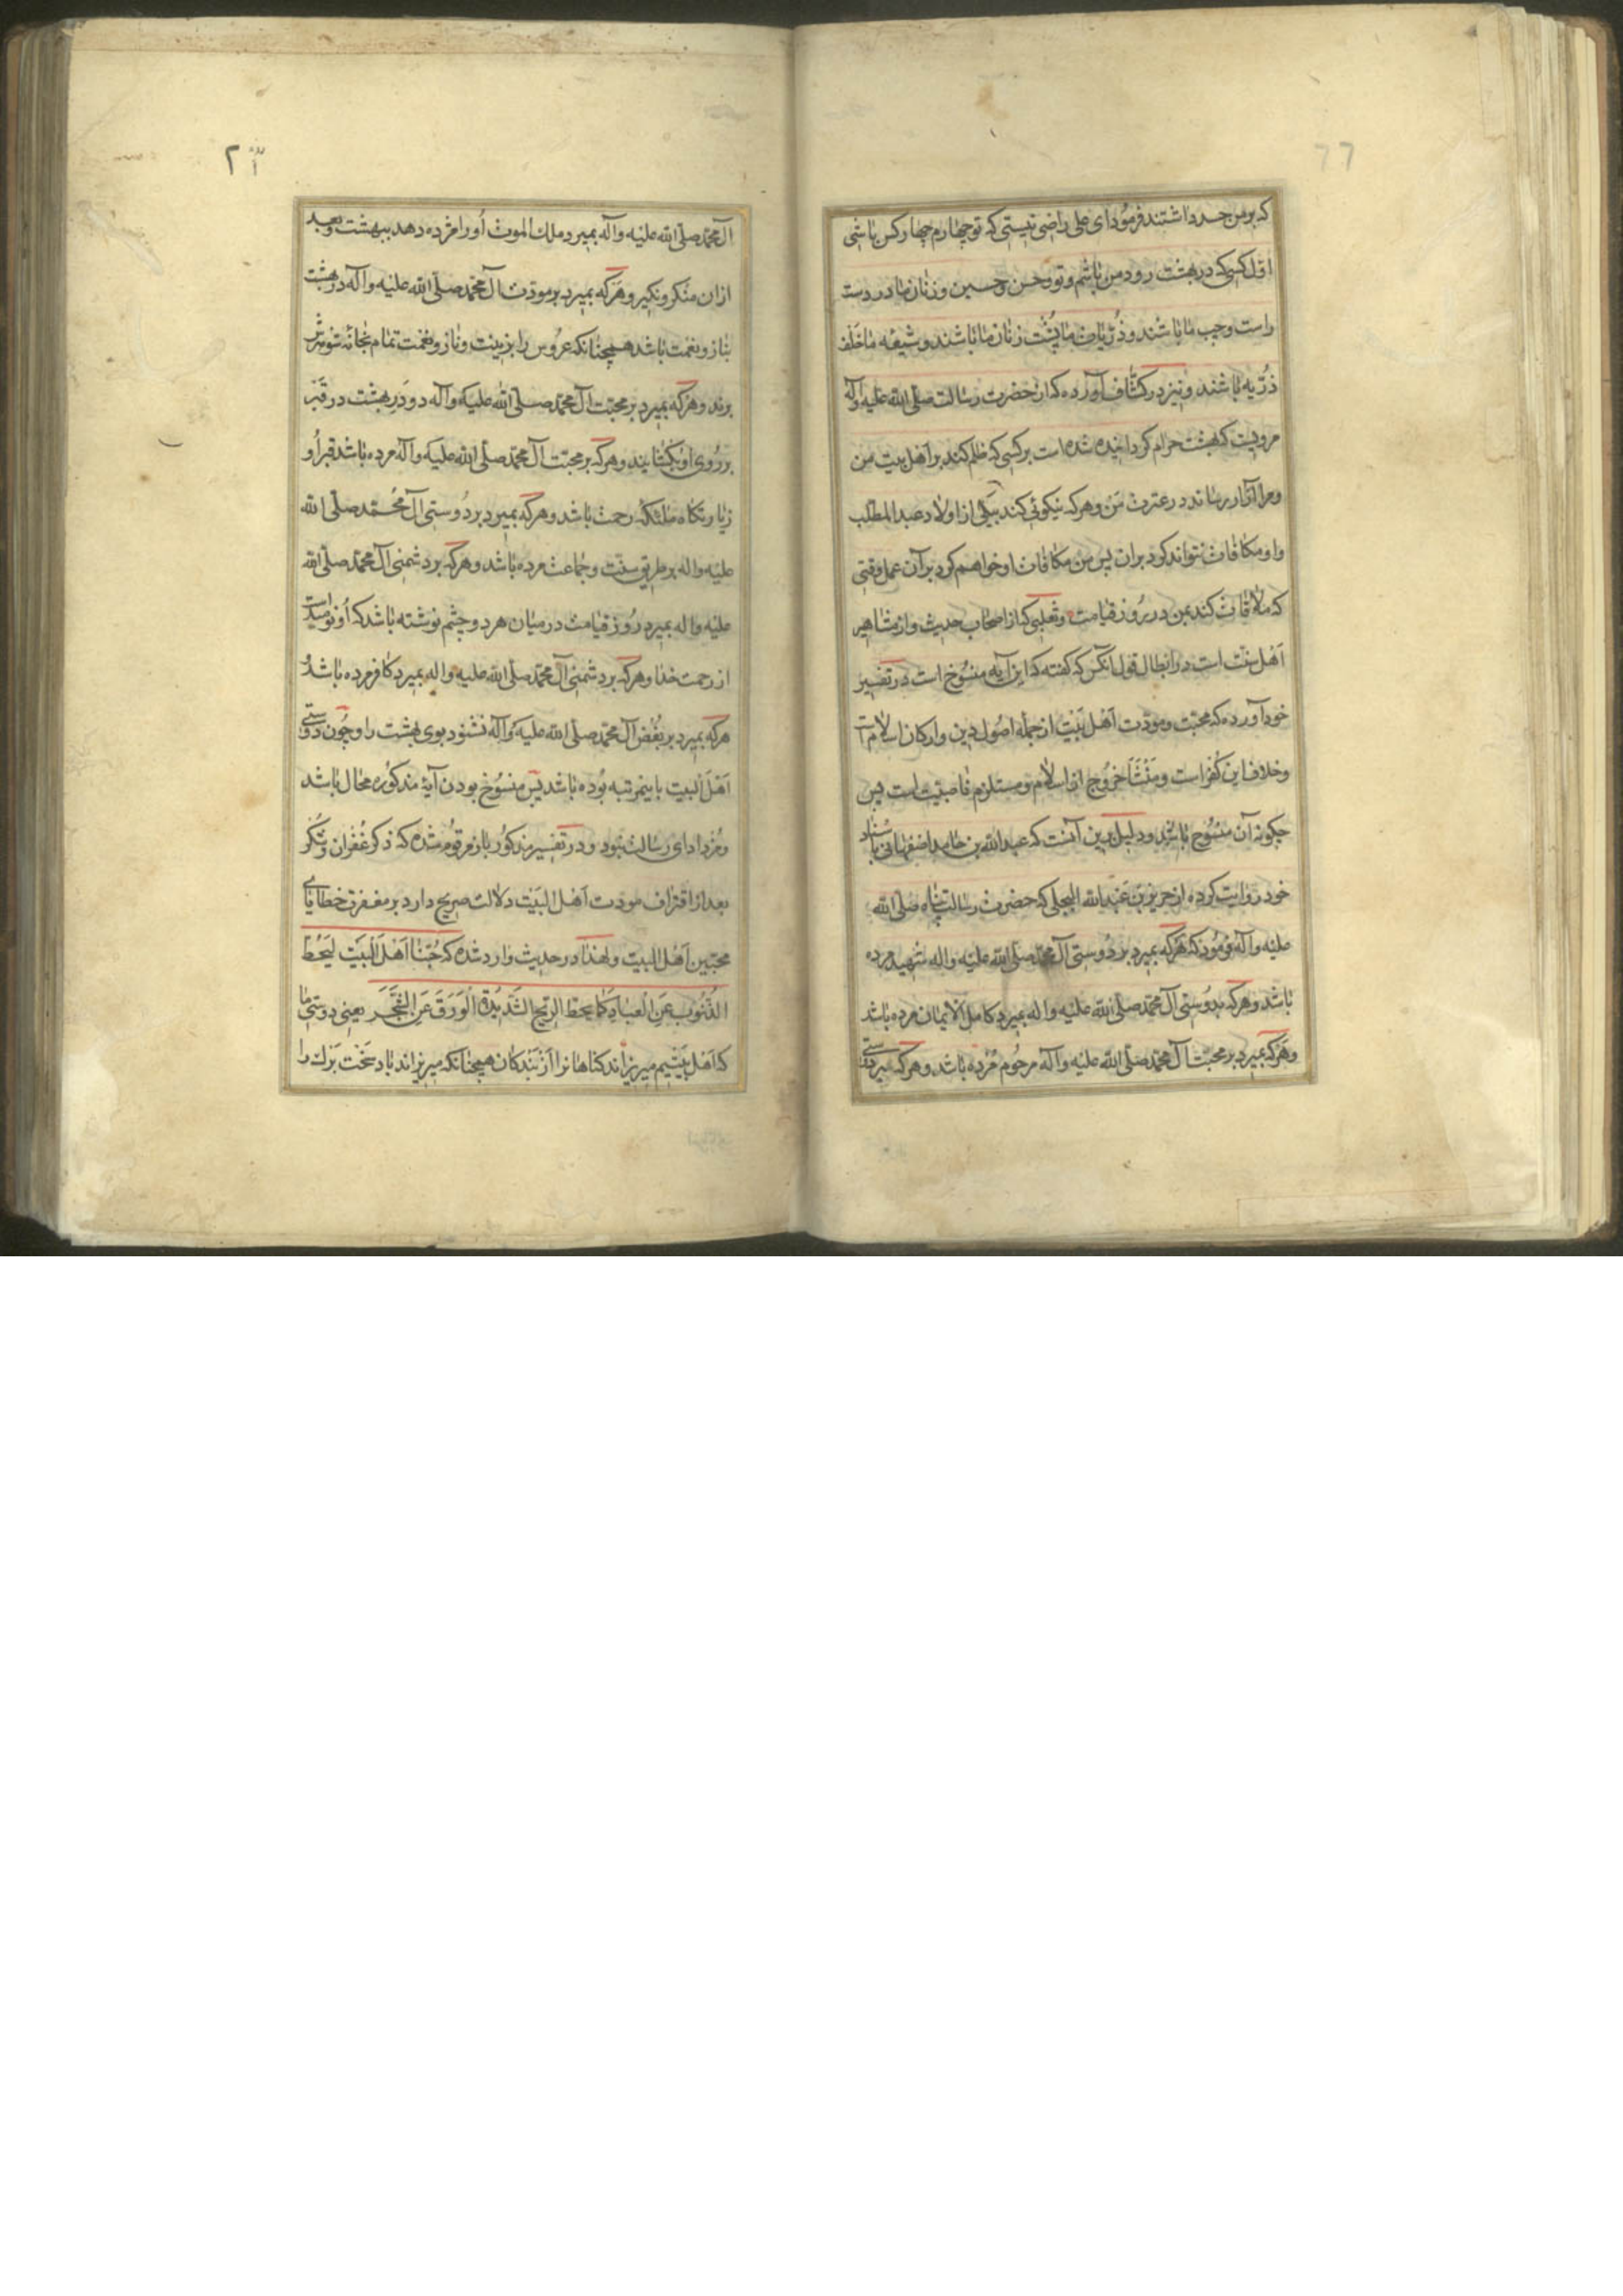 77
که بر من حسد داشتند فرمود ای علی راضی نیستی که تو چهارم چهار کس باشی
اول کسی که در بهشت رود من باشم و تو و حسن و حسین و زنان ما در دست
راست و چپ ما باشند و ذریات ما پشت زنان ما باشند و شیعه ما خلف
ذریه باشند و نیز در کشاف آورده که از حضرت رسالت صلی الله علیه وآله
مرویست که بهشت حرام کردانیده شده است بر کسی که ظلم کند بر اهل بیت من
و مرا آزار رساند در عترت من و هر که نیکوئی کند بیکی از اولاد عبد المطلب
و او مکافات نتواند کرد بران پس من مکافات او خواهم کرد بر آن عمل وقتی
که ملاقات کند بمن در روز قیامت و ثعلبی که از اصحاب حدیث و از مشاهیر
اهل سنت است در ابطال قول آنکس که کفته که این آیه منسوخ است در تفسیر
خود آورده که محبت و مودت اهل بیت از جمله اصول دین و ارکان اسلام است
و خلاف این کفر است و منشأ خروج از اسلام و مستلزم ناصبیت است پس
چکونه آن منسوخ باشد و دلیل برین آنست که عبد الله بن حامد اصفهانی باسناد
خود روایت کرده از جریر بن عبد الله البجلی که حضرت رسالت پناه صلی الله
علیه و آله فرمود که هر که بمیرد بر دوستی آل محمد صلی الله علیه و اله شهید مرده
باشد و هر که بدوستی آل محمد صلی الله علیه و اله بمیرد کامل الایمان مرده باشد
و هر که بمیرد بر محبت آل محمد صلی الله علیه و آله مرحوم مرده باشد و هر که بمیرد بدوستی
آل محمد صلی الله علیه و آله بمیرد ملک الموت او را مژده دهد ببهشت و بعد
ازان منکر و نکیر و هر که بمیرد بر مودت آل محمد صلی الله علیه و آله در بهشت
بناز و نعمت باشد همچنانکه عروس را بزینت و ناز و نعمت تمام بخانه شوهرش
برند و هر که بمیرد بر محبت آل محمد صلی الله علیه و آله دو در بهشت در قبر
بر روی او بکشایند و هر که بر محبت آل محمد صلی الله علیه و آله مرده باشد قبر او
زیارتکاه ملئکه رحمت باشد و هر که بمیرد بر دوستی آل محمد صلی الله
علیه و اله بر طریق سنت و جماعت مرده باشد و هر که بر دشمنی آل محمد صلی الله
علیه و اله بمیرد روز قیامت در میان هر دو چشم نوشته باشد که او نومیدست
از رحمت خدا و هر که بر دشمنی آل محمد صلی الله علیه و اله بمیرد کافر مرده باشد و
هر که بمیرد بر بغض آل محمد صلی الله علیه و آله نشنود بوی بهشت را و چون دوستی
اهل البیت باینمرتبه بوده باشد پس منسوخ بودن آیۀ مذکوره محال باشد
و مزد ادای رسالت نبود و در تفسیر مذکور باز مرقوم شده که ذکر غفران و شکر
بعد از اقتراف مودت اهل البیت دلالت صریح دارد بر مغفرت خطایای
محبین اهل البیت و لهذا در حدیث وارد شده که حبنا اهل البیت لیحط
الذنوب عن العباد کما یحط الریح الشدیدة الورق عن الشجر یعنی دوستی ما
که اهل بیتیم میریزاند کناهانرا از بندکان همچنانکه میریزاند باد سخت برک را